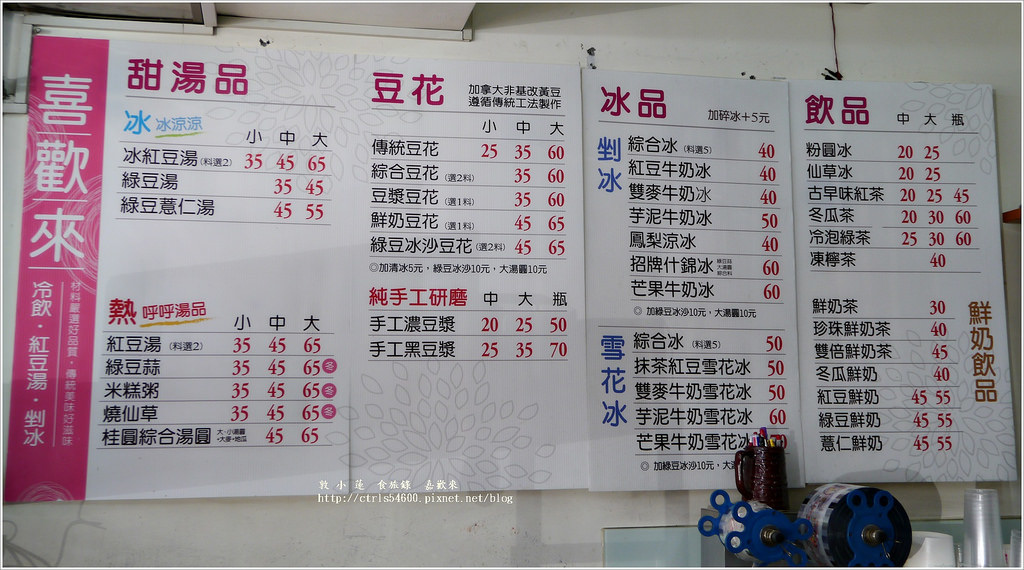 喜歡來
冷飲・紅豆湯・剉冰
材料嚴選好品質・傳統美味好滋味
甜湯品
冰 冰涼涼
小 中 大
冰紅豆湯(料選2) 35 45 65
綠豆湯 35 45
綠豆薏仁湯 45 55
熱 呼呼湯品
小 中 大
紅豆湯 (料選2) 35 45 65
綠豆蒜 35 45 65 冬
米糕粥 35 45 65 冬
燒仙草 35 45 65 冬
桂圓綜合湯圓 45 65
豆花
加拿大非基改黃豆
遵循傳統工法製作
小 中 大
傳統豆花 25 35 60
綜合豆花 (選2料) 35 60
豆漿豆花 (選1料) 35 60
鮮奶豆花 (選1料) 45 65
綠豆冰沙豆花(選2料) 45 65
◎加清冰5元，綠豆冰沙10元，大湯圓10元
純手工研磨 中 大 瓶
手工濃豆漿 20 25 50
手工黑豆漿 25 35 70
冰品
加碎冰+5元
剉冰
綜合冰 (料選5) 40
紅豆牛奶冰 40
雙麥牛奶冰 40
芋泥牛奶冰 50
鳳梨涼冰 40
招牌什錦冰 60
芒果牛奶冰 60
◎ 加綠豆冰沙10元，大湯圓10元
雪花冰
綜合冰 (料選5) 50
抹茶紅豆雪花冰 50
雙麥牛奶雪花冰 50
芋泥牛奶雪花冰 60
芒果牛奶雪花冰
◎ 加綠豆冰沙10元，大
飲品
中 大 瓶
粉圓冰 20 25
仙草冰 20 25
古早味紅茶 20 25 45
冬瓜茶 20 30 60
冷泡綠茶 25 30 60
凍檸茶 40
鮮奶飲品
鮮奶茶 30
珍珠鮮奶茶 40
雙倍鮮奶茶 45
冬瓜鮮奶 40
紅豆鮮奶 45 55
綠豆鮮奶 45 55
薏仁鮮奶 45 55
敦小蓮 食旅錄 喜歡來
http://ctrls54600.pixnet.net/blog